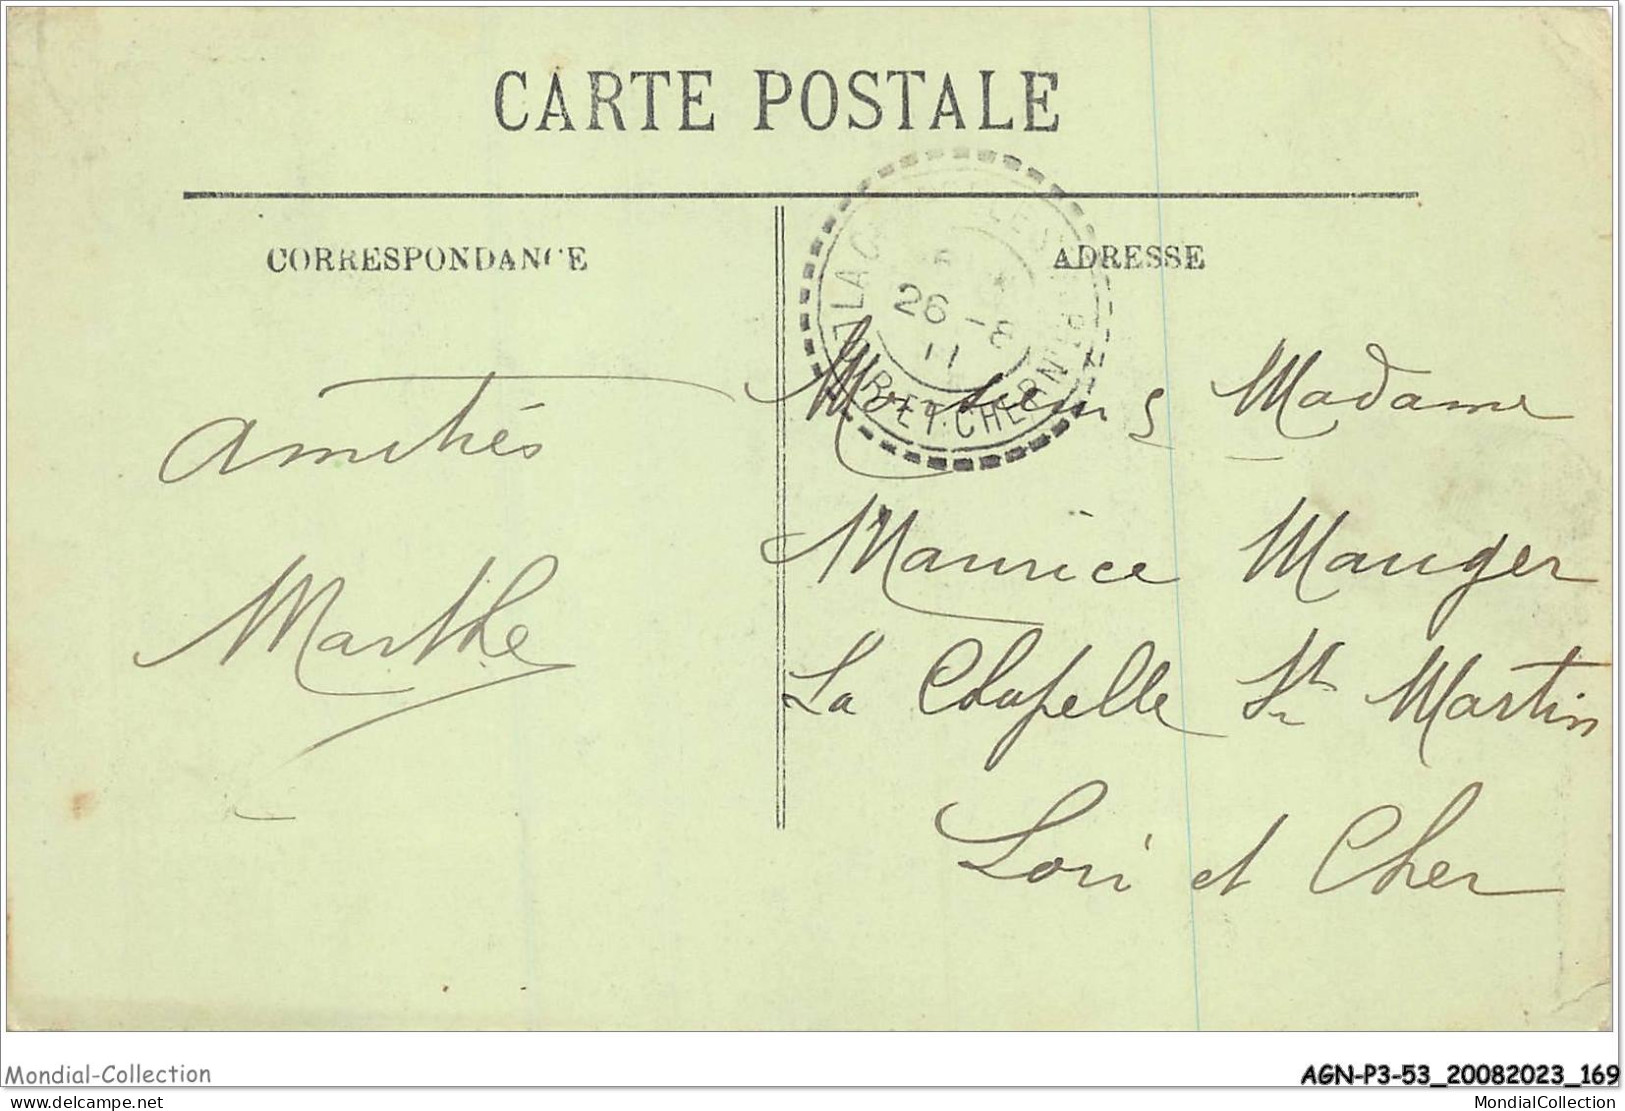 CARTE POSTALE
CORRESPONDANCE
ADRESSE
26 - 8
11
LOIR-ET-CHER
Amitiés
Marthe
Monsieur & Madame
Maurice Mauger
La Chapelle St Martin
Loir et Cher
Mondial-Collection
AGN-P3-53_20082023_169
delcampe.net
MondialCollection